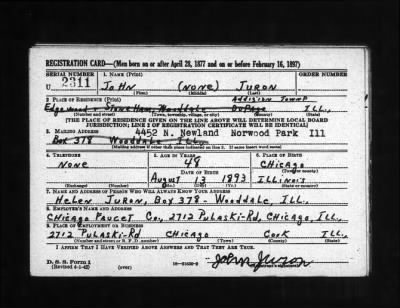 REGISTRATION CARD—(Men born on or after April 28, 1877 and on or before February 16, 1897)
SERIAL NUMBER 1. NAME (Print) ORDER NUMBER
U 2311 JOHN (NONE) JURON
(First) (Middle) (Last)
2. PLACE OF RESIDENCE (Print) Addison Townp
Wooddale DuPage ILL.
(Number and street) (Town, township, village, or city) (County) (State)
[THE PLACE OF RESIDENCE GIVEN ON THE LINE ABOVE WILL DETERMINE LOCAL BOARD
JURISDICTION; LINE 2 OF REGISTRATION CERTIFICATE WILL BE IDENTICAL]
3. MAILING ADDRESS 4452 N. Newland Norwood Park Ill
Box 378 Wooddale ILL.
[Mailing address if other than place indicated on line 2. If same insert word same]
4. TELEPHONE 5. AGE IN YEARS 6. PLACE OF BIRTH
NONE 48 CHICAGO
DATE OF BIRTH (Town or county)
AUGUST 13 1893 ILLINOIS
(Exchange) (Number) (Mo.) (Day) (Yr.) (State or country)
7. NAME AND ADDRESS OF PERSON WHO WILL ALWAYS KNOW YOUR ADDRESS
HELEN JURON, BOX 378 - WOODDALE, ILL.
8. EMPLOYER'S NAME AND ADDRESS
CHICAGO FAUCET CO., 2712 PULASKI-RD, CHICAGO, ILL.
9. PLACE OF EMPLOYMENT OR BUSINESS
2712 PULASKI-RD CHICAGO COOK ILL.
(Number and street or R. F. D. number) (Town) (County) (State)
I AFFIRM THAT I HAVE VERIFIED ABOVE ANSWERS AND THAT THEY ARE TRUE.
D. S. S. Form 1
(Revised 4-1-42) (over) John Juron